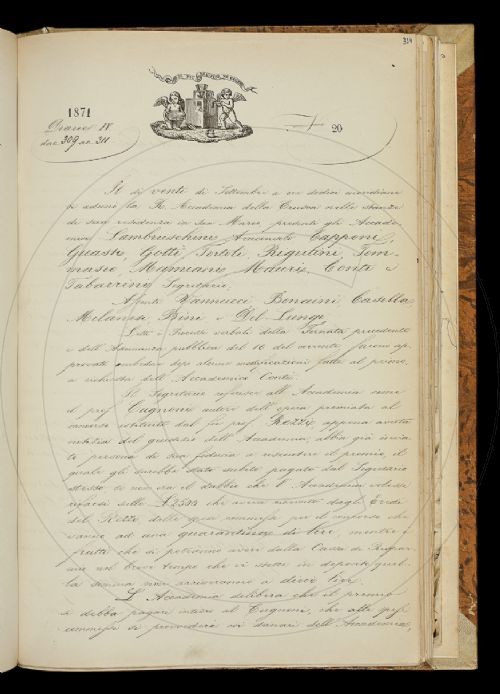 314
1871
Diario IV
dac 309 a c 311
20
Il dì venti di Settembre a ore dodici meridiane
si adunò la R. Accademia della Crusca nelle stanze
di sua residenza in San Marco, presenti gli Accade-
mici Lambruschini Arciconsolo Capponi,
Guasti, Gotti, Tortoli, Rigutini, Tom-
maseo, Mamiani, Maurizi, Conti e
Tabarrini Segretario,
Assenti Vannucci Bencini, Casella
Milanesi Bini e Del Lungo,
Letti i Processi verbali della Tornata precedente
e dell'Adunanza pubblica del 10 del corrente, furono ap-
provati ambedue dopo alcune modificazioni fatte al primo,
a richiesta dell'Accademico Conti.
Il Segretario referisce all'Accademia come
il prof. Cugnoni autore dell'opera premiata al
concorso istituito dal fu prof. Rezzi, appena avuta
notizia del giudizio dell'Accademia, abbia già invia-
to persona di sua fiducia a riscuotere il premio, il
quale gli sarebbe stato subito pagato dal Segretario
stesso se non era il dubbio che l'Accademia volesse
che aveva ricevuto dagli Eredi
del Rezzi della spesa per il
ad una quarantina di lire, mentre i
frutti che si potranno avere dalla Cassa di Rispar-
mio nel breve tempo che vi stette in deposito quel-
la somma non arriveranno a dieci lire.
L'Accademia delibera che il premio
si debba pagare intiero al Cugnoni, che alle spese
occorse si provveda coi danari dell'Accademia,